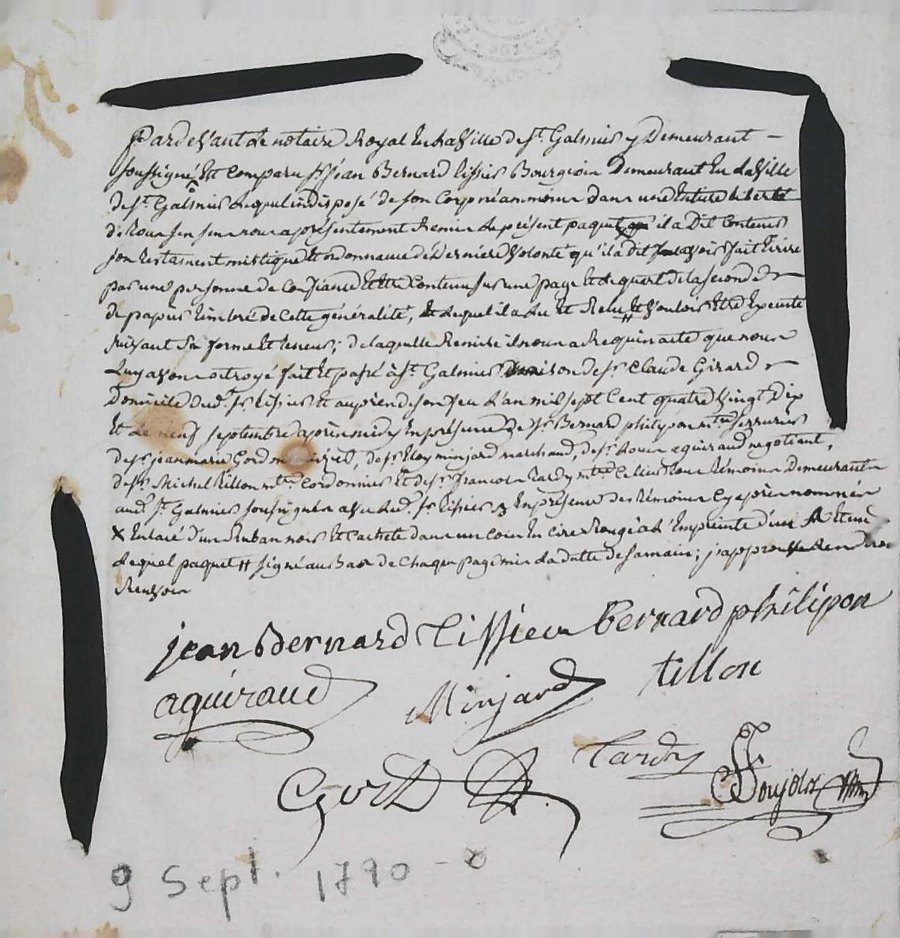 Pardevant le notaire Royal En la Ville de St. Galmier y Demeurant –
soussigné Est Comparu Sr. Jean Bernard lissier Bourgeois Demeurant En la Ville
de St. Galmier Lequel indisposé de son Corp néanmoins dans une Entiere liberté
de tous ses sens nous a présentement Remis le présent paquet qu'il a Dit Contenir
son testament mistique Et ordonnance de Derniere Volonté qu'il a dit avoir fait Ecrire
par une personne de Confiance Et Etre Contenu sur une page Et le quart de la seconde
de papier timbré de Cette généralité, Lequel il a Lu Et Relu Et Vouloir Etre Executé
suivant sa forme Et teneur; de laquelle Remise il nous a Requis acte que nous
Luy avons octroyé fait Et passé à St. Galmier Maison de Sr. Claude Girard
Domicile Dud. Sr. lissier Et auprès de son feu L'an mil sept Cent quatre Vingt Dix
Et Le neuf septembre après midy En présence de Sr. Bernard philypon mtre. serrurier
de Sr. jean marie Gord, de Sr. Eloy minjard marchand, de Sr. aquiraud negotiant,
de Sr. Michel tillon mtre. Cordonnier Et de Sr. françois tardy mtre. tous témoins Demeurants
aud. St. Galmier soussignés avec Led. Sr. lissier En présence des témoins Cy après nommés
x Enlacé d'un Ruban noir Et Cacheté dans un coin En cire Rouge à L'Empreinte d'un
Lequel paquet # signé au Bas de Chaque page mis La datte de sa main; j'approuve
Renvois
jean Bernard Lissieu bernard philipon
aquiraud Minjard tillon
Gord tardy
Soujolx
9 Sept. 1790